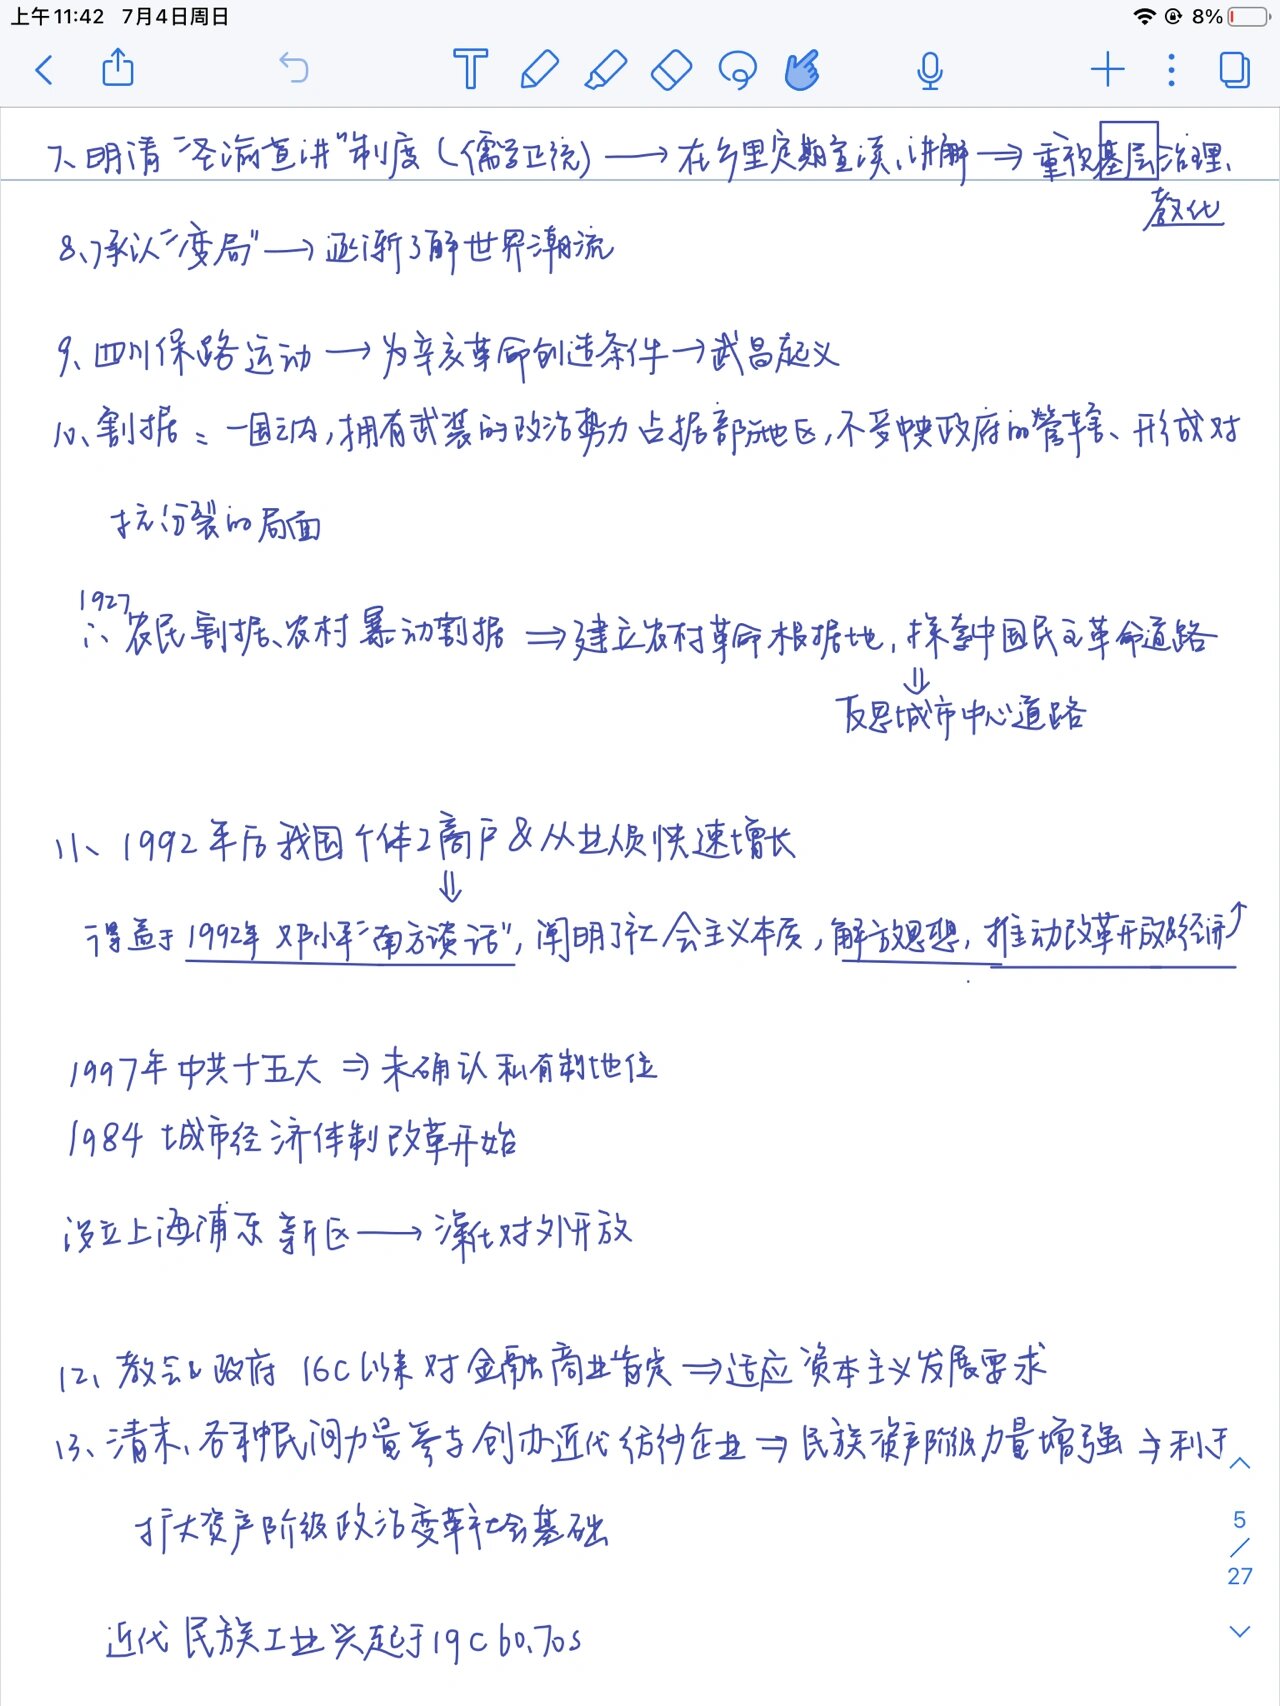 上午11:42 7月4日周日
8%
7、明清“圣谕宣讲”制度(儒学正统)→在乡里定期宣读、讲解⇒重视基层治理、
教化
8、承认“变局”→逐渐了解世界潮流
9、四川保路运动→为辛亥革命创造条件→武昌起义
10、割据:一国之内,拥有武装的政治势力占据部分地区,不受中央政府的管辖、形成对
抗分裂的局面
1927
∴农民割据、农村暴动割据⇒建立农村革命根据地,探索中国民主革命道路
⇓
反思城市中心道路
11、1992年后我国个体工商户&从业人员快速增长
⇓
得益于1992年邓小平“南方谈话”,阐明了社会主义本质,解放思想,推动改革开放&经济↑
1997年中共十五大⇒未确认私有制地位
1984城市经济体制改革开始
设立上海浦东新区→深化对外开放
12、教会&政府16C以来对金融商业肯定⇒适应资本主义发展要求
13、清末、各种民间力量参与创办近代纺纱企业⇒民族资产阶级力量增强⇒利于
扩大资产阶级政治变革社会基础
近代民族工业兴起于19C60、70s
5
/
27